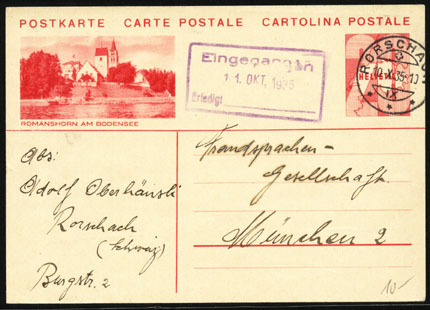 POSTKARTE CARTE POSTALE CARTOLINA POSTALE
Eingegangen
11. OKT. 1935
Erledigt
RORSCHACH
10.X.35.10
HELVETIA
ROMANSHORN AM BODENSEE
Abs:
Adolf Oberhänsli
Rorschach
(Schweiz)
Burgstr. 2
Fremdsprachen-
Gesellschaft
München 2
10-